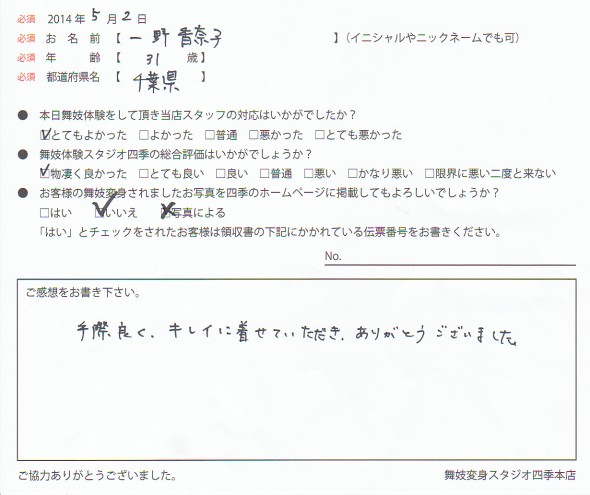 必須 2014年 5月 2日
必須 お名前【一野 香奈子】(イニシャルやニックネームでも可)
必須 年齢【 31 歳】
必須 都道府県名【 千葉県 】
● 本日舞妓体験をして頂き当店スタッフの対応はいかがでしたか?
☑とてもよかった □よかった □普通 □悪かった □とても悪かった
● 舞妓体験スタジオ四季の総合評価はいかがでしょうか?
☑物凄く良かった □とても良い □良い □普通 □悪い □かなり悪い □限界に悪い二度と来ない
● お客様の舞妓変身されましたお写真を四季のホームページに掲載してもよろしいでしょうか?
□はい ☑いいえ ☒写真による
「はい」とチェックをされたお客様は領収書の下記にかかれている伝票番号をお書きください。
No.
ご感想をお書き下さい。
手際良く、キレイに着せていただき、ありがとうございました。
ご協力ありがとうございました。 舞妓変身スタジオ四季本店